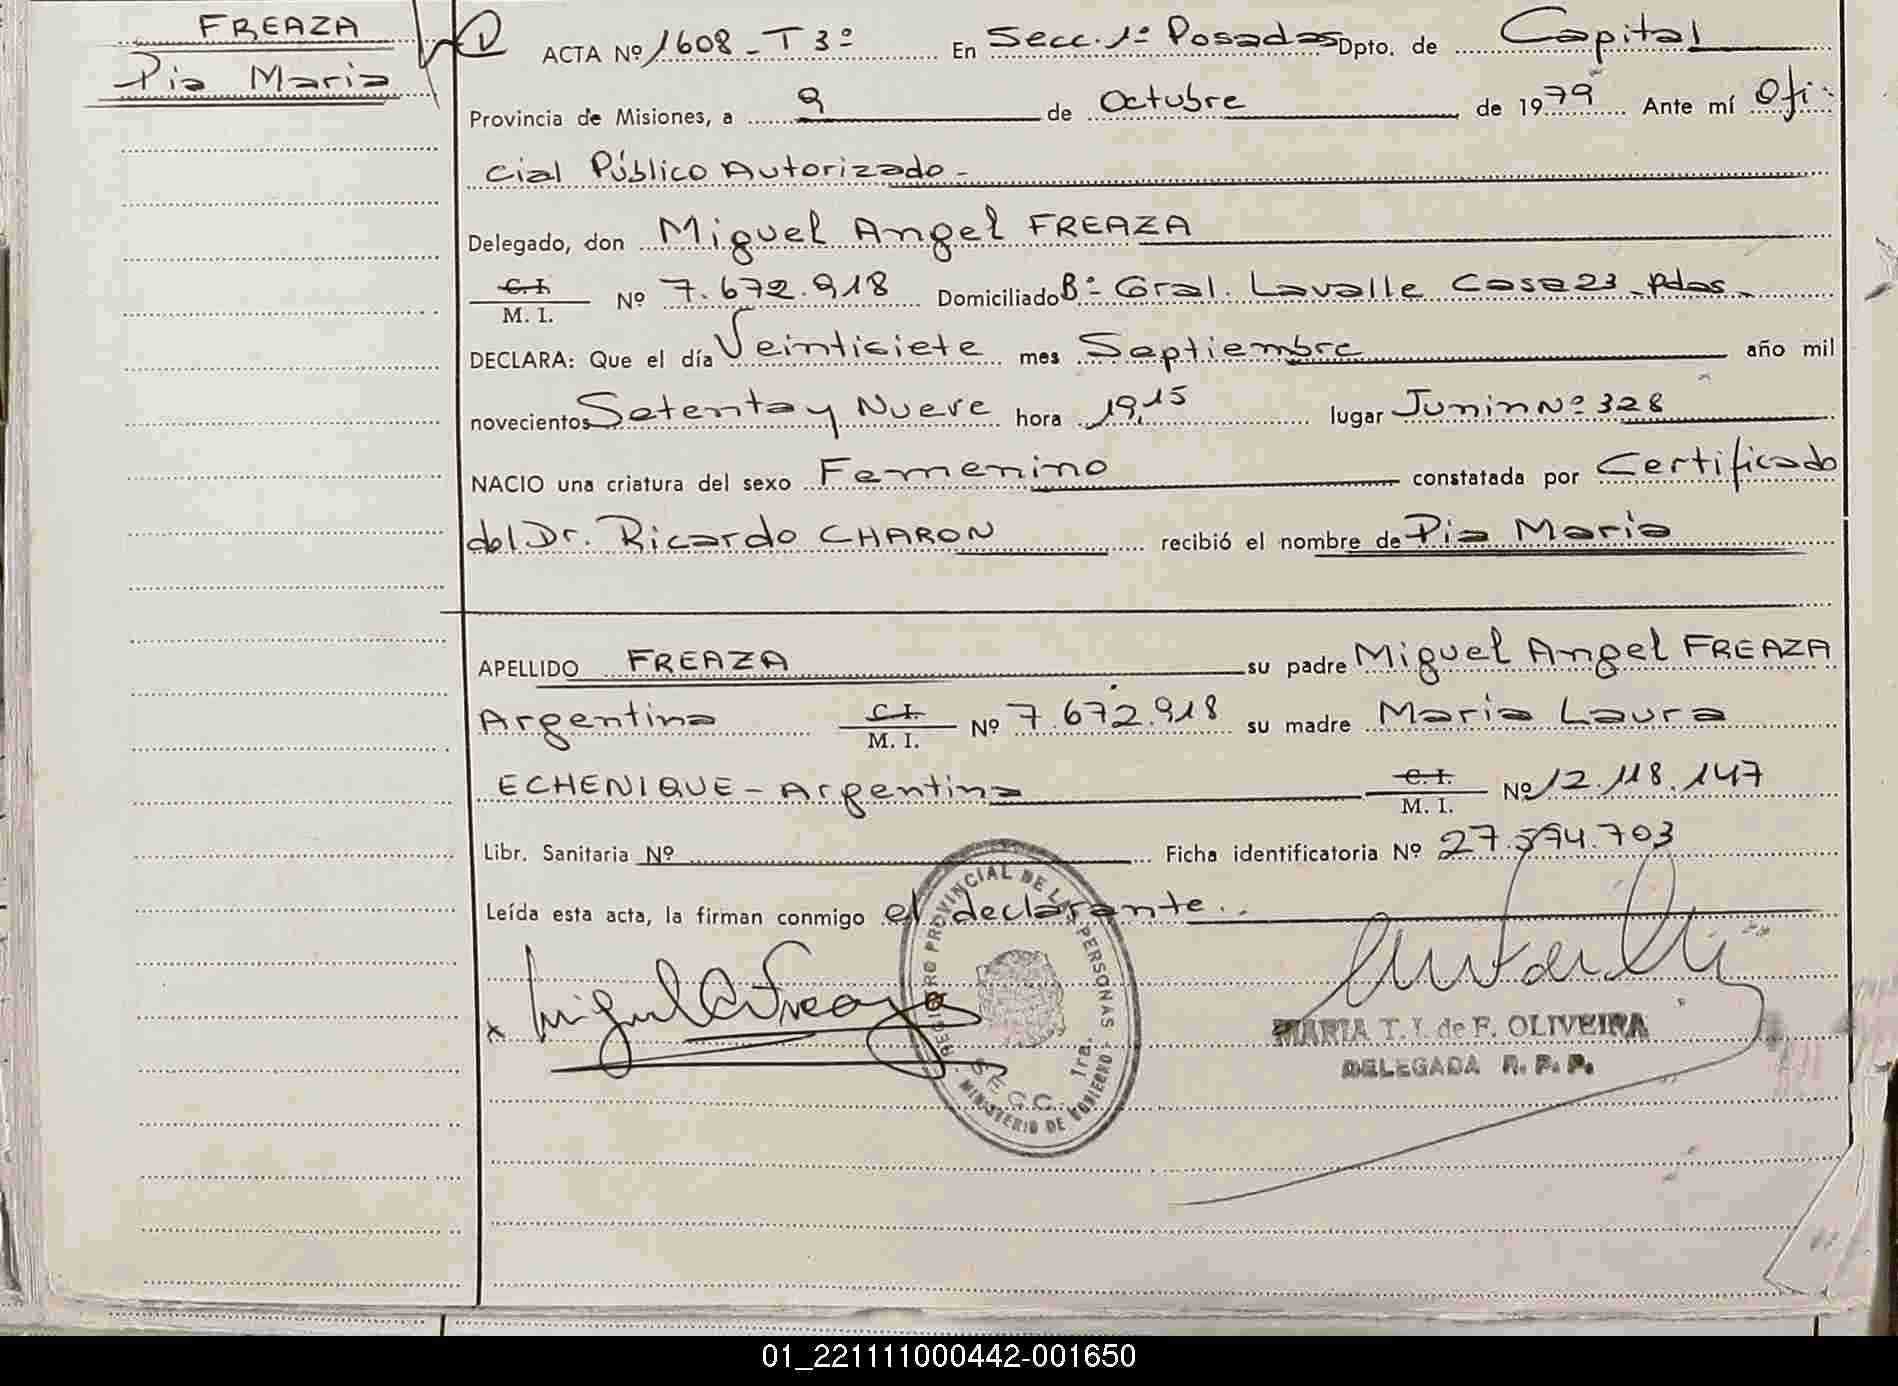 FREAZA
Pia Maria
ACTA Nº 1608 - T 3º En Secc. 1º Posadas Dpto. de Capital
Provincia de Misiones, a 9 de Octubre de 1979 Ante mí Ofi-
cial Público Autorizado -
Delegado, don Miguel Angel FREAZA
C. I.
M. I. Nº 7.672.918 Domiciliado Bº Gral. Lavalle Casa 23 - Pdas -
DECLARA: Que el día Veintisiete mes Septiembre año mil
novecientos Setenta y Nueve hora 19,15 lugar Junin Nº 328
NACIO una criatura del sexo Femenino constatada por Certificado
del Dr. Ricardo CHARON recibió el nombre de Pia Maria
APELLIDO FREAZA su padre Miguel Angel FREAZA
Argentina C. I.
M. I. Nº 7.672.918 su madre Maria Laura
ECHENIQUE - Argentina C. I.
M. I. Nº 12.118.147
Libr. Sanitaria Nº Ficha identificatoria Nº 27.594.703
Leída esta acta, la firman conmigo el declarante..
x Miguel A Freaza
REGISTRO PROVINCIAL DE LAS PERSONAS
SECC. 1ra.
MINISTERIO DE GOBIERNO
MARIA T. I. de F. OLIVEIRA
DELEGADA R. P. P.
01_221111000442-001650